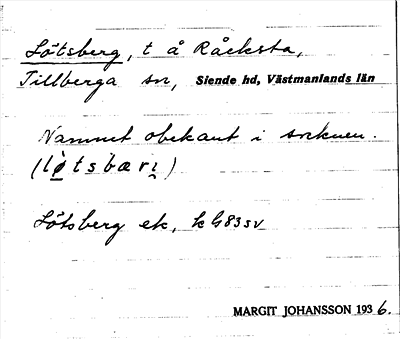 Lötsberg, t å Råcksta,
Tillberga sn, Siende hd, Västmanlands län
Namnet obekant i socknen.
(lø̀tsbæri)
Lötsberg ek, k G83 sv
MARGIT JOHANSSON 1936.